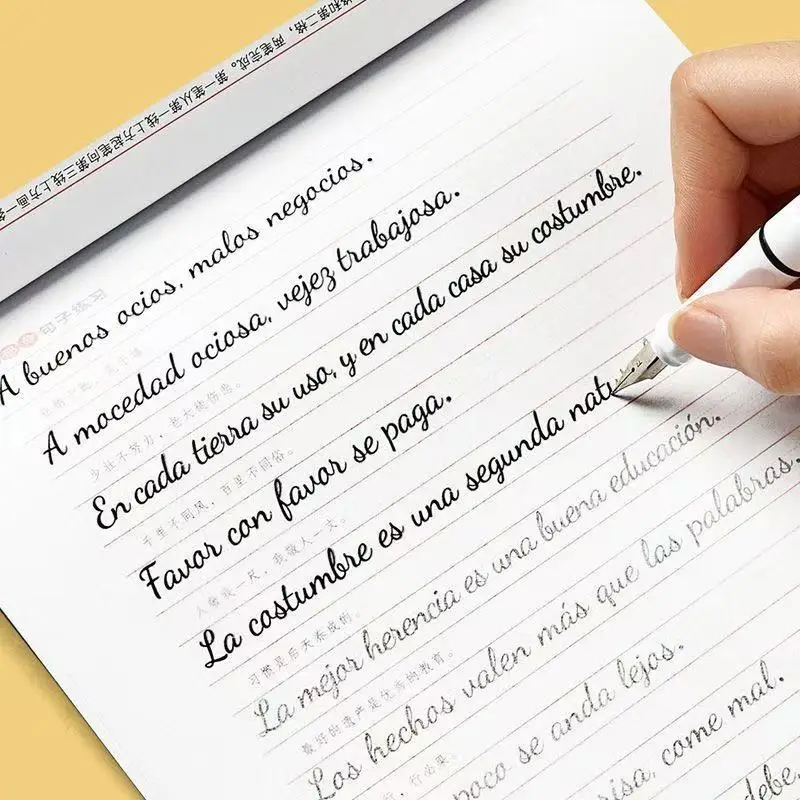 格和第二格，两笔完成。第一笔从第一线上方起笔向第三线上方画一条
句子练习
A buenos ocios, malos negocios.
A mocedad ociosa, vejez trabajosa.
少壮不努力，老大徒伤悲。
En cada tierra su uso, y en cada casa su costumbre.
千里不同风，百里不同俗。
Favor con favor se paga.
人敬我一尺，我敬人一丈。
La costumbre es una segunda natu
习惯是后天养成的。
La mejor herencia es una buena educación.
最好的遗产是优秀的教育。
Los hechos valen más que las palabras.
行必果。
poco se anda lejos.
isa, come mal.
debe,